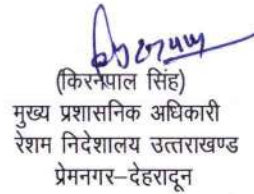 (किरनेपाल सिंह)
मुख्य प्रशासनिक अधिकारी
रेशम निदेशालय उत्तराखण्ड
प्रेमनगर–देहरादून